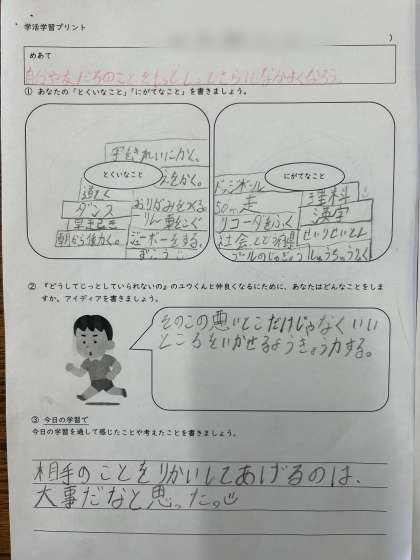 学活学習プリント
)
めあて
自分や友だちのことをもっとしってさらになかよくなろう。
① あなたの「とくいなこと」「にがてなこと」を書きましょう。
とくいなこと
字をきれいにかく。
えをかく。
ダンス
おりがみをおる。
早おき
一りん車をこぐ
朝から
ずこう
にがてなこと
ドッジボール
理科
50m走
漢字
リコーダをふく
せいりせいとん
社会
プールのじゅぎょう
しゅうちゅうりょく
② 『どうしてじっとしていられないの』のユウくんと仲良くなるために、あなたはどんなことをしま
すか。アイディアを書きましょう。
そのこの悪いとこだけじゃなくいい
ところをいかせるようきょう力する。
③ 今日の学習で
今日の学習を通して感じたことや考えたことを書きましょう。
相手のことをりかいしてあげるのは、
大事だなと思った。